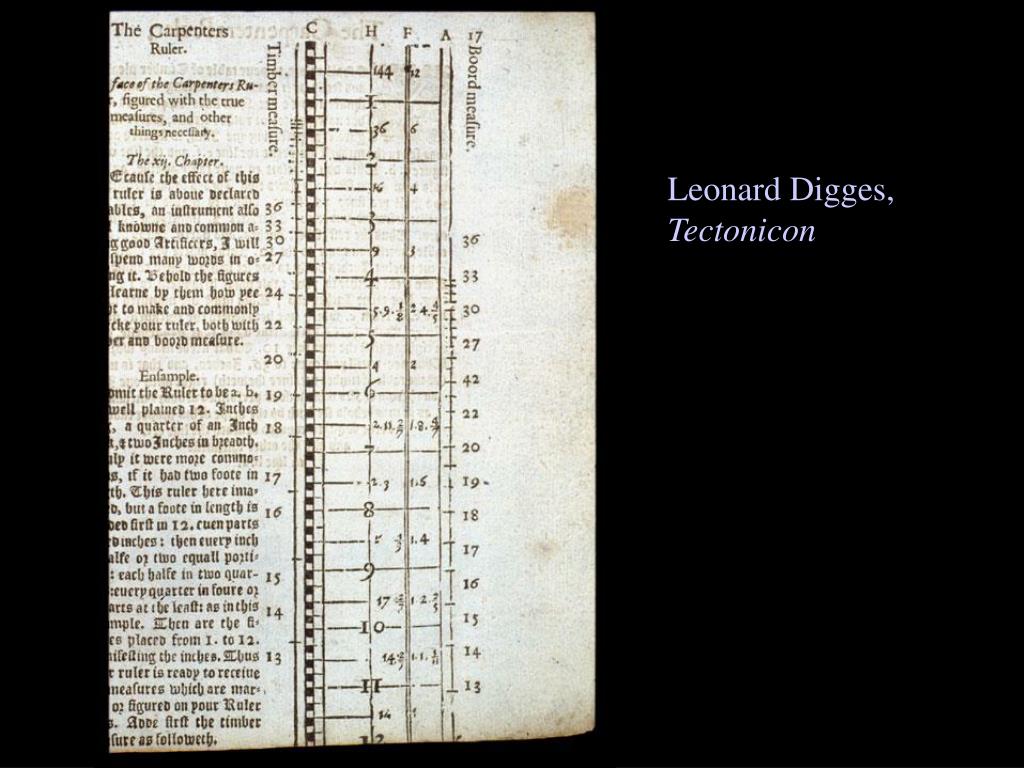 The Carpenters
Ruler.
face of the Carpenters Ru-
, figured with the true
meaſures, and other
things neceſſary.
The xij. Chapter.
Ecauſe the effect of this
ruler is aboue declared
ables, an inſtrument alſo
knowne and common a-
g good Artificers, I will
ſpend many words in o-
ng it. Behold the figures
learne by them how yee
ht to make and commonly
cke your ruler, both with
er and boord meaſure.
Enſample.
dmit the Ruler to be a. b.
well plained 12. Inches
, a quarter of an Inch
, & two Inches in breadth.
ly it were more commo-
s, if it had two foote in
th. This ruler here ima-
d, but a foote in length is
ded firſt in 12. euen parts
ed inches: then euery inch
alfe or two equall porti-
: each halfe in two quar-
: euery quarter in foure or
arts at the leaſt: as in this
mple. Then are the fi-
es placed from 1. to 12.
nifeſting the inches. Thus
r ruler is ready to receiue
meaſures which are mar-
or figured on your Ruler
s. Adde firſt the timber
ſure as followeth.
C H F A 17
Timber meaſure.
36
33
30
27
24
22
20
19
18
17
16
15
14
13
144 12
1
36 6
2
16 4
3
9 3
4
5.9.1/8 2.4.4/5
5
4 2
6
2.11.2/7 1.8.4/7
7
2.3 1.6
8
1.4
9
17 1.2.2/5
10
14 1.1.1/11
11
14 1
12
Boord meaſure.
36
33
30
27
42
22
20
19
18
17
16
15
14
13
Leonard Digges,
Tectonicon